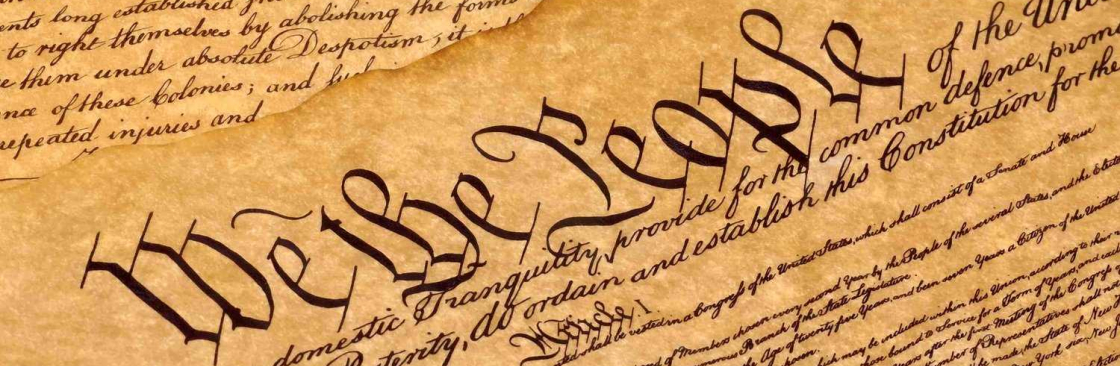 ents long established
to right themselves by abolishing the forms
them under absolute Despotism, it is
nce of these Colonies; and such
repeated injuries and
We the People of the Unit
domestic Tranquility, provide for the common defence, promo
Posterity, do ordain and establish this Constitution for the
Article I
shall be vested in a Congress of the United States, which shall consist of a Senate and House
of Members chosen every second Year by the People of the several States, and the Elect
Branch of the State Legislature.
the Age of twenty five Years, and been seven Years a Citizen of the United
chosen
which may be included within this Union, according to their
bound to Service for a Term of Years, and
Years after the first Meeting of the Congress
Number of Representatives shall not
be made, the State of New
New York six, New